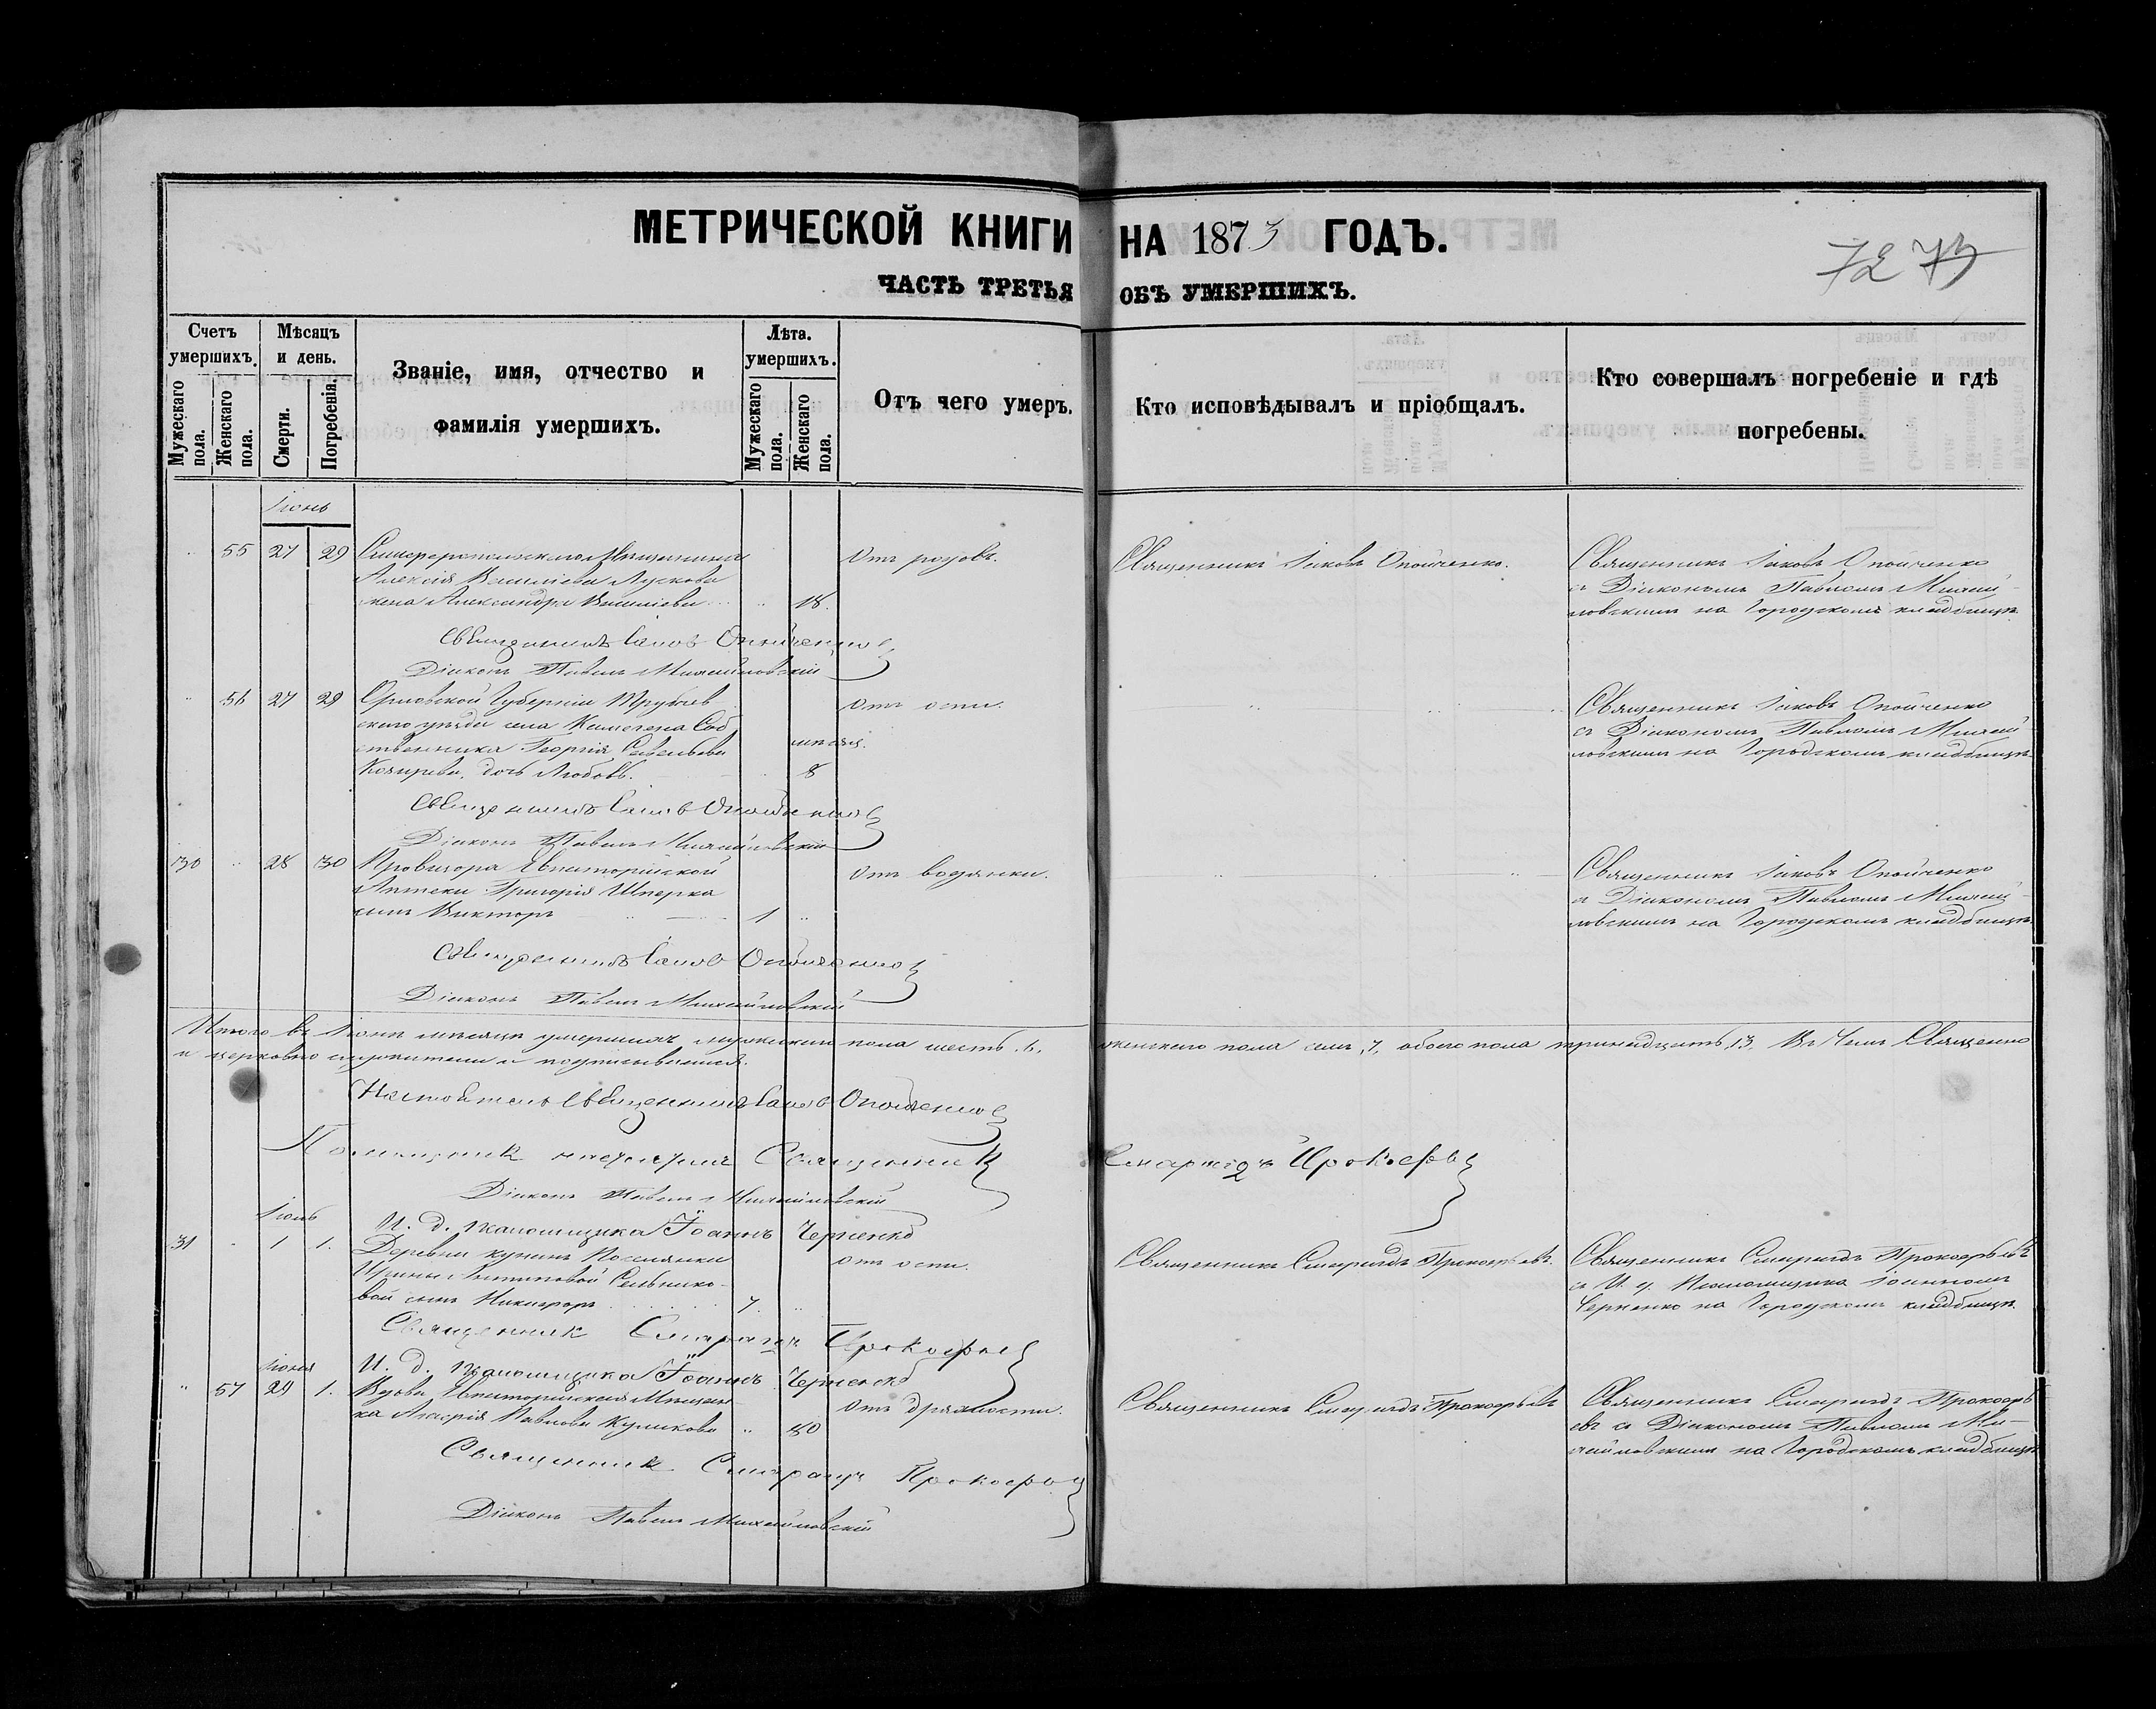 МЕТРИЧЕСКОЙ КНИГИ НА 1873 ГОДЪ.
72 73
ЧАСТЬ ТРЕТЬЯ ОБЪ УМЕРШИХЪ.
Счетъ умершихъ.
Мужескаго пола.
Женскаго пола.
Мѣсяцъ и день.
Смерти.
Погребенія.
Званіе, имя, отчество и
фамилія умершихъ.
Лѣта. умершихъ.
Мужескаго пола.
Женскаго пола.
Отъ чего умеръ.
Кто исповѣдывалъ и пріобщалъ.
Кто совершалъ погребеніе и гдѣ
погребены.
Іюнь
55 27 29 Симферопольскаго Мѣщанина Отъ родовъ. Священникъ Іаковъ Опойченко. Священникъ Іаковъ Опойченко
Алексія Василіева съ Діакономъ Павломъ Михай-
жена Александра Василіева 18. ловскимъ на Городскомъ кладбищѣ.
Священникъ Іаковъ Опойченко
Діаконъ Павелъ Михайловскій
56 27 29 Орловской Губерніи Трубчев Отъ оспы. Священникъ Іаковъ Опойченко
скаго уѣзда села Соб съ Діакономъ Павломъ Михай
ственника Георгія Савельева мѣсяц. ловскимъ на Городскомъ кладбищѣ
дочь Любовь. 8
Священникъ Іаковъ Опойченко
Діаконъ Павелъ Михайловскій
30 28 30 Провизора Евпаторійской Отъ водянки. Священникъ Іаковъ Опойченко
Аптеки Григорія съ Діакономъ Павломъ Михай
сынъ Викторъ 1 ловскимъ на Городскомъ кладбищѣ
Священникъ Іаковъ Опойченко
Діаконъ Павелъ Михайловскій
Итого въ Іюнѣ мѣсяцѣ умершихъ мужескаго пола шесть 6, женскаго пола семь, 7, обоего пола тринадцать, 13. Въ чемъ Священно
и церковно служители и подписываемся.
Настоятель Священникъ Іаковъ Опойченко
Помощникъ настоятеля Священникъ Спиридонъ Прокофьев
Діаконъ Павелъ Михайловскій
Іюль И. д. псаломщика Іоаннъ Черненко
31 1 1. Деревни Поселянки Отъ оспы. Священникъ Спиридонъ Прокофьевъ. Священникъ Спиридонъ Прокофьевъ
Ирины Сельнико- съ И. д. Псаломщика Іоанномъ
вой сынъ Никифоръ 7. Черненко на Городскомъ кладбищѣ.
Священникъ Спиридонъ Прокофьев
Іюня И. д. псаломщика Іоаннъ Черненко
57 29 1. Вдова Евпаторійскаго Мѣщани Отъ дряхлости. Священникъ Спиридонъ Прокофьевъ Священникъ Спиридонъ Прокофь
ка Андрія Павлова Куликова 80 евъ съ Діакономъ Павломъ Ми-
хайловскимъ на Городскомъ кладбищѣ
Священникъ Спиридонъ Прокофьев
Діаконъ Павелъ Михайловскій